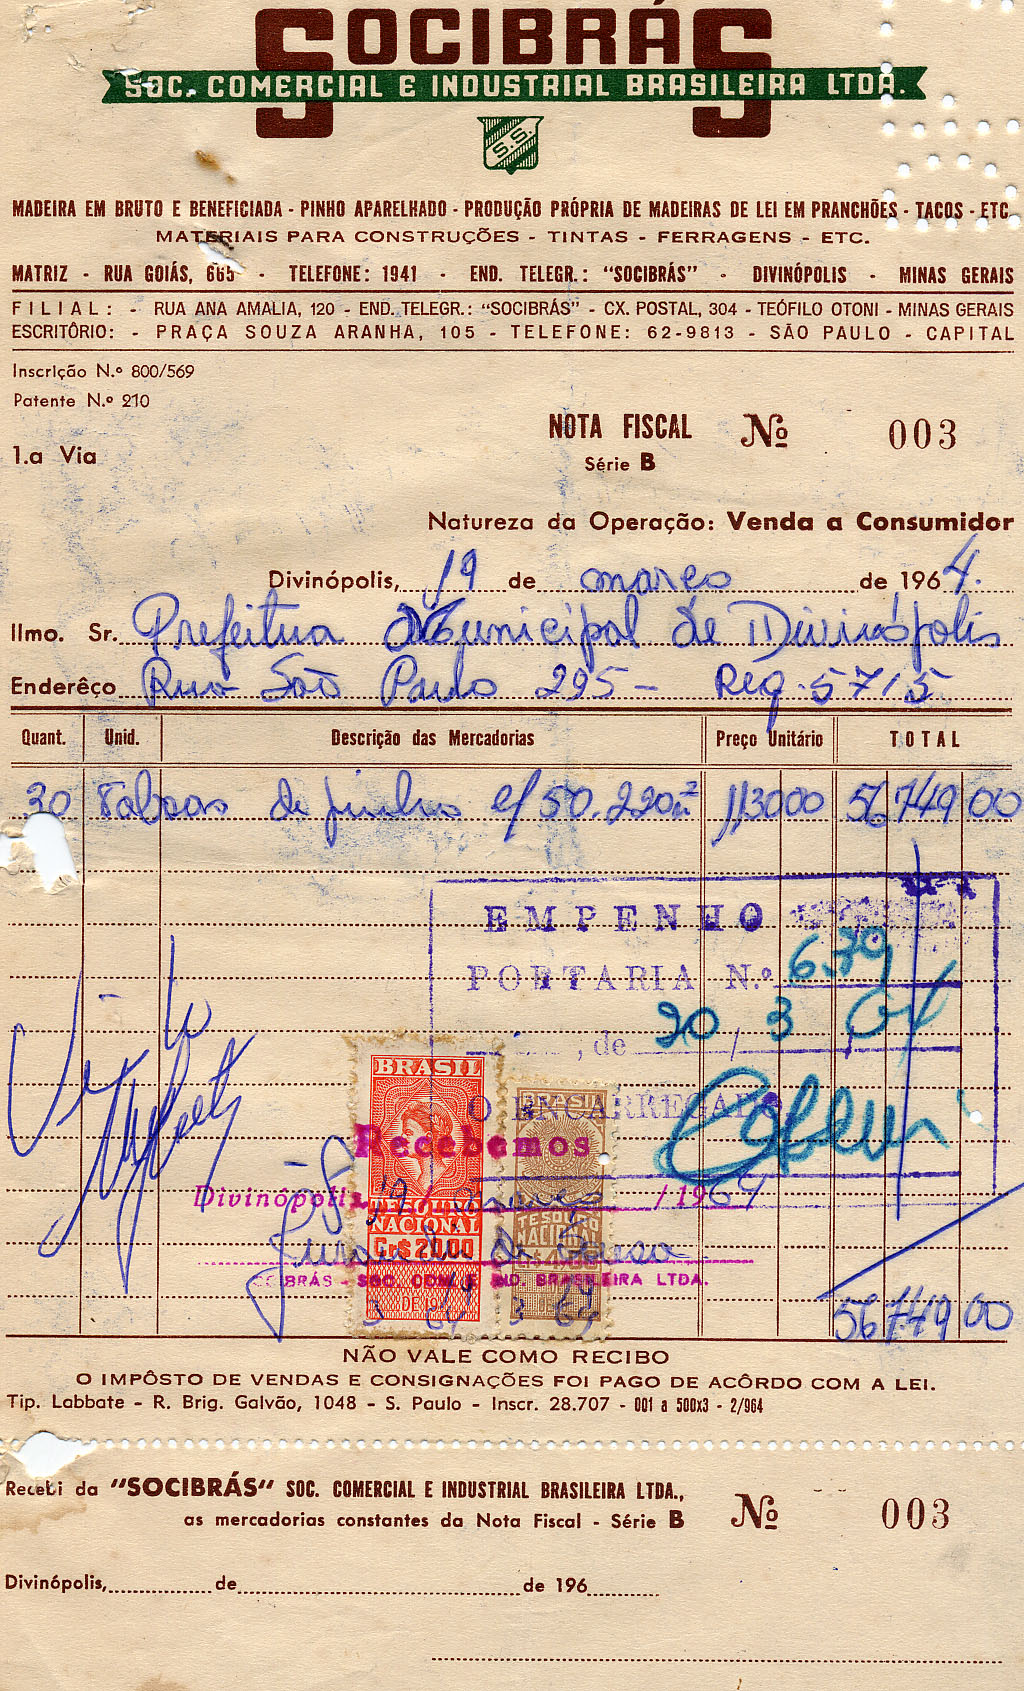 SOCIBRÁS
SOC. COMERCIAL E INDUSTRIAL BRASILEIRA LTDA.
S.S.
MADEIRA EM BRUTO E BENEFICIADA - PINHO APARELHADO - PRODUÇÃO PRÓPRIA DE MADEIRAS DE LEI EM PRANCHÕES - TACOS - ETC
MATERIAIS PARA CONSTRUÇÕES - TINTAS - FERRAGENS - ETC.
MATRIZ - RUA GOIÁS, 665 - TELEFONE: 1941 - END. TELEGR.: "SOCIBRÁS" - DIVINÓPOLIS - MINAS GERAIS
FILIAL: - RUA ANA AMALIA, 120 - END. TELEGR.: "SOCIBRÁS" - CX. POSTAL, 304 - TEÓFILO OTONI - MINAS GERAIS
ESCRITÓRIO: - PRAÇA SOUZA ARANHA, 105 - TELEFONE: 62-9813 - SÃO PAULO - CAPITAL
Inscrição N.º 800/569
Patente N.º 210
NOTA FISCAL Nº 003
1.a Via
Série B
Natureza da Operação: Venda a Consumidor
Divinópolis, 19 de março de 1964.
Ilmo. Sr. Prefeitua Municipal de Divinópolis
Enderêço Rua São Paulo 295 - Req. 5715
Quant. Unid. Descrição das Mercadorias Preço Unitário TOTAL
30 Taboas de pinho c/ 50.220m² 113000 56749 00
EMPENHO
PORTARIA N.º 6.79
, de 20 3 64
BRASIL
BRASIL
O ENCARREGADO
Recebemos
Divinópolis 19 / março / 1964
TESOURO NACIONAL
TESOURO NACIONAL
Cr$ 20,00
de Sousa
SOCIBRÁS - SOC. COM. E IND. BRASILEIRA LTDA.
3 64 3 64
56749 00
NÃO VALE COMO RECIBO
O IMPÔSTO DE VENDAS E CONSIGNAÇÕES FOI PAGO DE ACÔRDO COM A LEI.
Tip. Labbate - R. Brig. Galvão, 1048 - S. Paulo - Inscr. 28.707 - 001 a 500x3 - 2/964
Recebi da "SOCIBRÁS" SOC. COMERCIAL E INDUSTRIAL BRASILEIRA LTDA.,
as mercadorias constantes da Nota Fiscal - Série B Nº 003
Divinópolis, de de 196